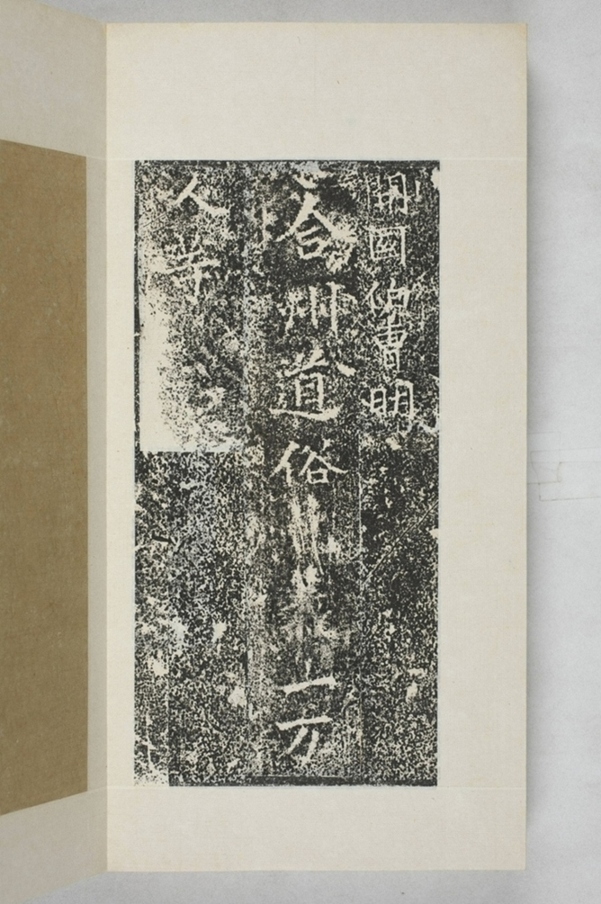 開國伯曹明
合州道俗
一万
人等